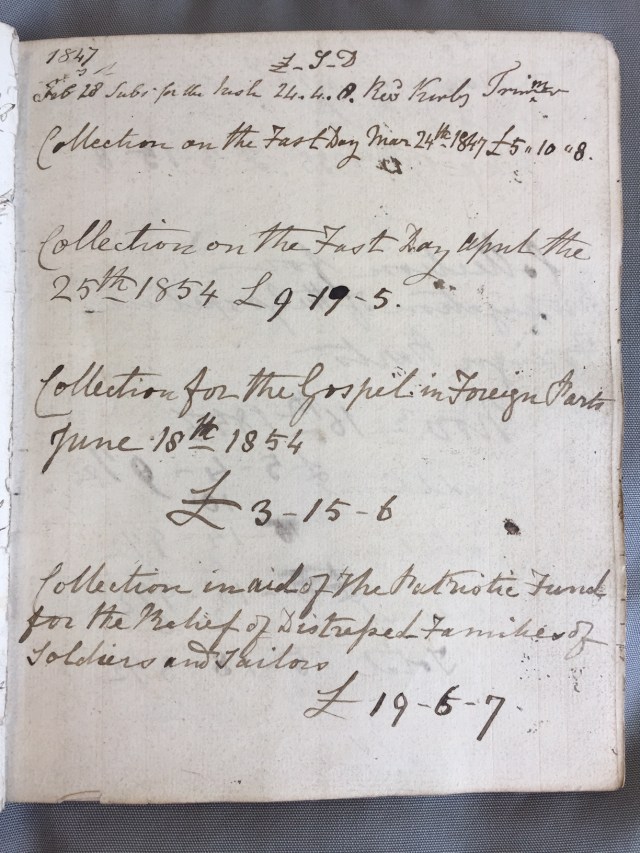 1847
£-S-D
Feb 28 Subs. for the Irish 24.4.8. Revd Kirby Trimmer
Collection on the Fast Day Mar 24th 1847 £5"10"8.
Collection on the Fast Day April the
25th 1854 £9-19-5.
Collection for the Gospel in Foreign Parts
June 18th 1854
£3-15-6
Collection in aid of the Patriotic Fund
for the Relief of Distressed Families of
Soldiers and Sailors
£19-6-7.